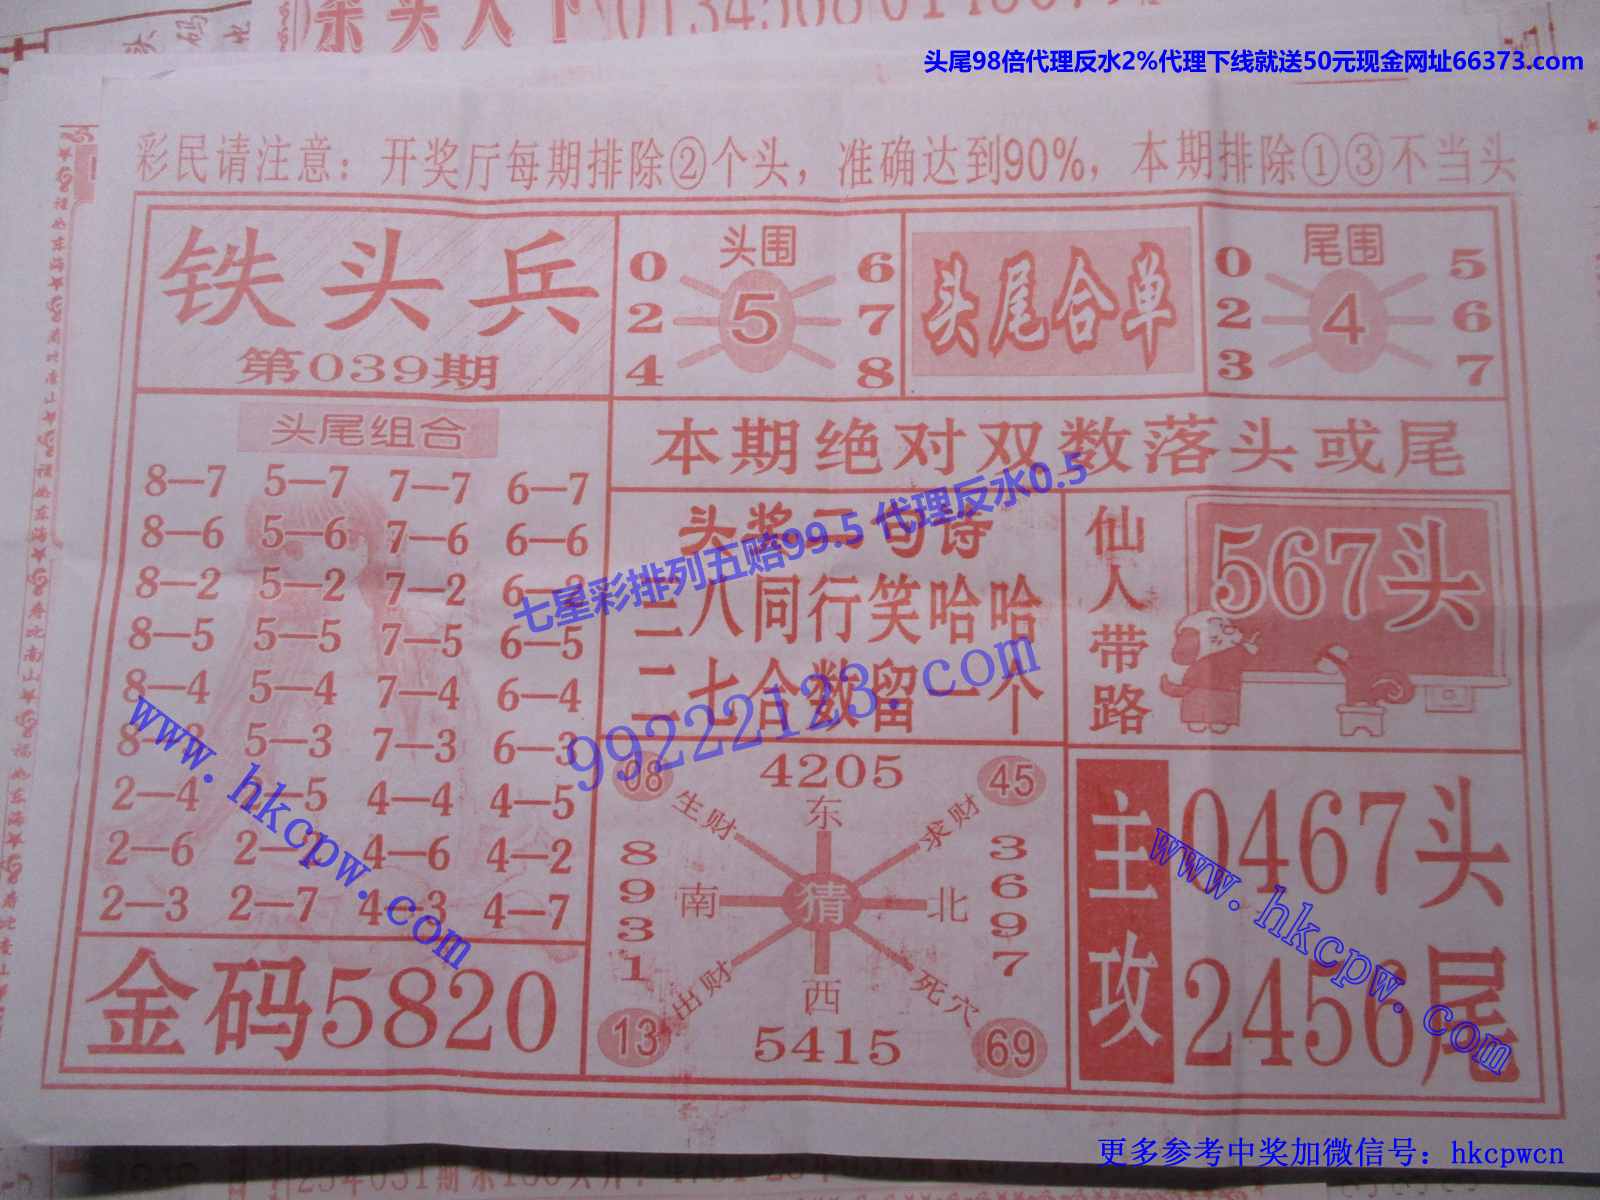 头尾98倍代理反水2%代理下线就送50元现金网址66373.com
彩民请注意：开奖厅每期排除②个头，准确达到90%，本期排除①③不当头
铁头兵
第039期
头围
0 6
2 5 7
4 8
头尾合单
尾围
0 5
2 4 6
3 7
头尾组合
8—7 5—7 7—7 6—7
8—6 5—6 7—6 6—6
8—2 5—2 7—2
8—5 5—5 7—5 6—5
8—4 5—4 7—4 6—4
5—3 7—3 6—3
2—4 4—4 4—5
2—6 4—6 4—2
2—3 2—7 4—3 4—7
金码5820
本期绝对双数落头或尾
头奖二句诗
三八同行笑哈哈
二七合数留一个
仙人带路
567头
98 4205 45
生财 东 求财
8931 南 猜 北 3697
出财 西 死穴
13 5415 69
主攻
0467头
2456尾
七星彩排列五赔99.5 代理反水0.5
99222123.com
www.hkcpw.com
www.hkcpw.com
更多参考中奖加微信号：hkcpwcn